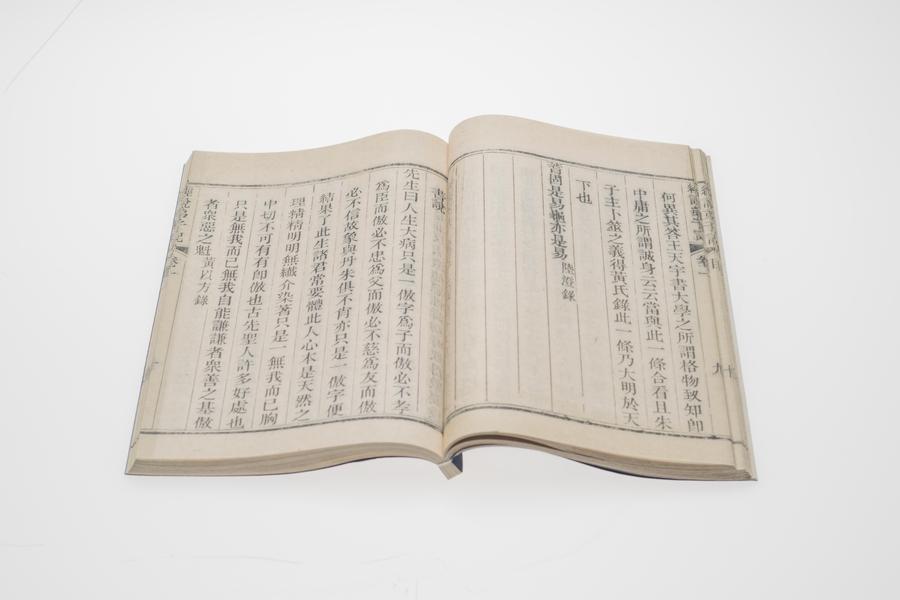 何異其答王天宇書大學之所謂格物致知卽
中庸之所謂誠身云云當與此一條合看且朱
子主卜筮之義得黃氏錄此一條乃大明於天
下也
善固是易惡亦是易 陸澄錄
書誠
先生曰人生大病只是一傲字爲子而傲必不孝
爲臣而傲必不忠爲父而傲必不慈爲友而傲
必不信故象與丹朱俱不肖亦只是一傲字便
結果了此生諸君常要體此人心本是天然之
理精精明明無纖介染著只是一無我而已胸
中切不可有有卽傲也古先聖人許多好處也
只是無我而已無我自能謙謙者衆善之基傲
者衆惡之魁 黃以方錄
卷一
九